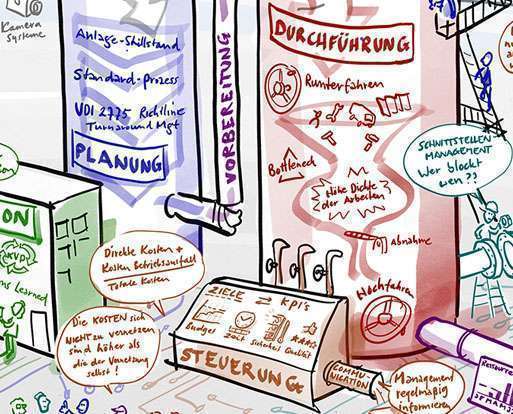 Kamera
Systeme
Anlage-Stillstand
Standard-Prozess
VDI 2775 Richtlinie
Turnaround Mgt
PLANUNG
VORBEREITUNG
DURCHFÜHRUNG
Runterfahren
Bottleneck
Hohe Dichte
der Arbeiten
Abnahme
Hochfahren
SCHNITTSTELLEN
MANAGEMENT
Wer blockt
wen??
ON
KVP
ns Learned
Direkte Kosten +
Kosten Betriebsausfall
Totale Kosten
Die KOSTEN sich
NICHT zu vernetzen
sind höher als
die der Vernetzung
selbst!
ZIELE ⇄ KPI's
Budget
Zeit
Sicherheit
Qualität
STEUERUNG
COMMUNICATION
Management
regelmäßig
informieren
Ressource